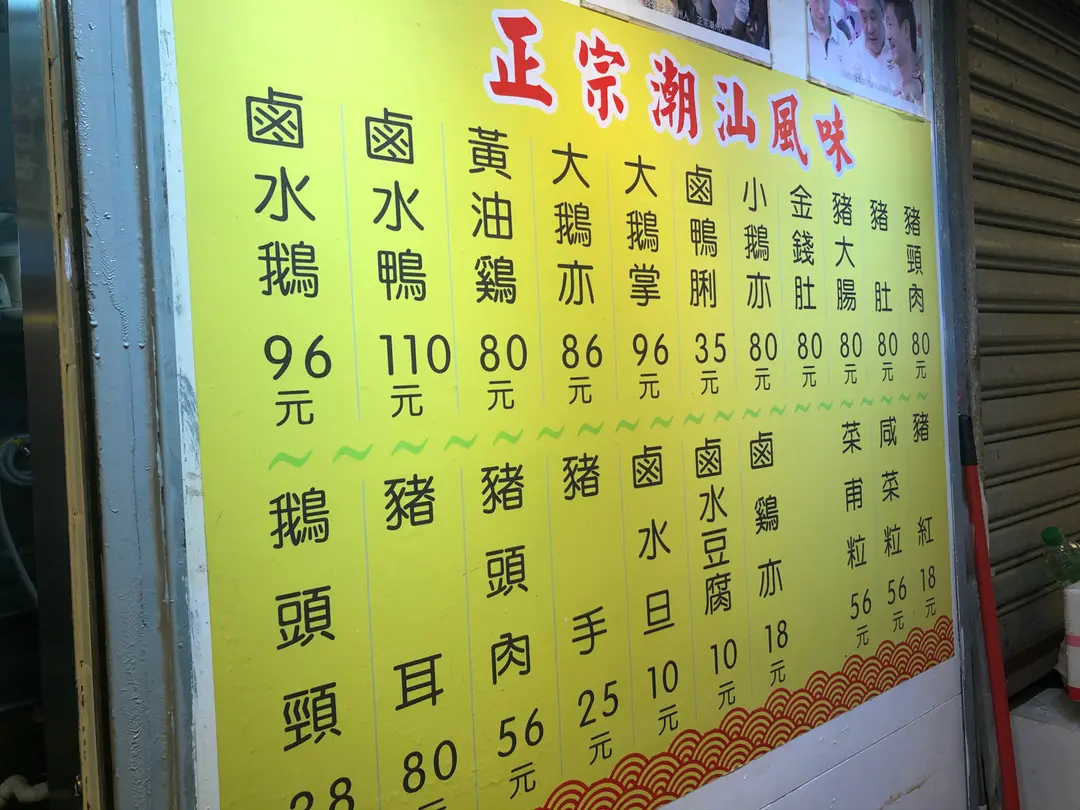 正宗潮汕風味
鹵水鵝 96元
鹵水鴨 110元
黃油鷄 80元
大鵝亦 86元
大鵝掌 96元
鹵鴨脷 35元
小鵝亦 80元
金錢肚 80元
豬大腸 80元
豬肚 80元
豬頸肉 80元
鵝頭頸
豬耳 80元
豬頭肉 56元
豬手 25元
鹵水旦 10元
鹵水豆腐 10元
鹵鷄亦 18元
菜甫粒 56元
咸菜粒 56元
豬紅 18元